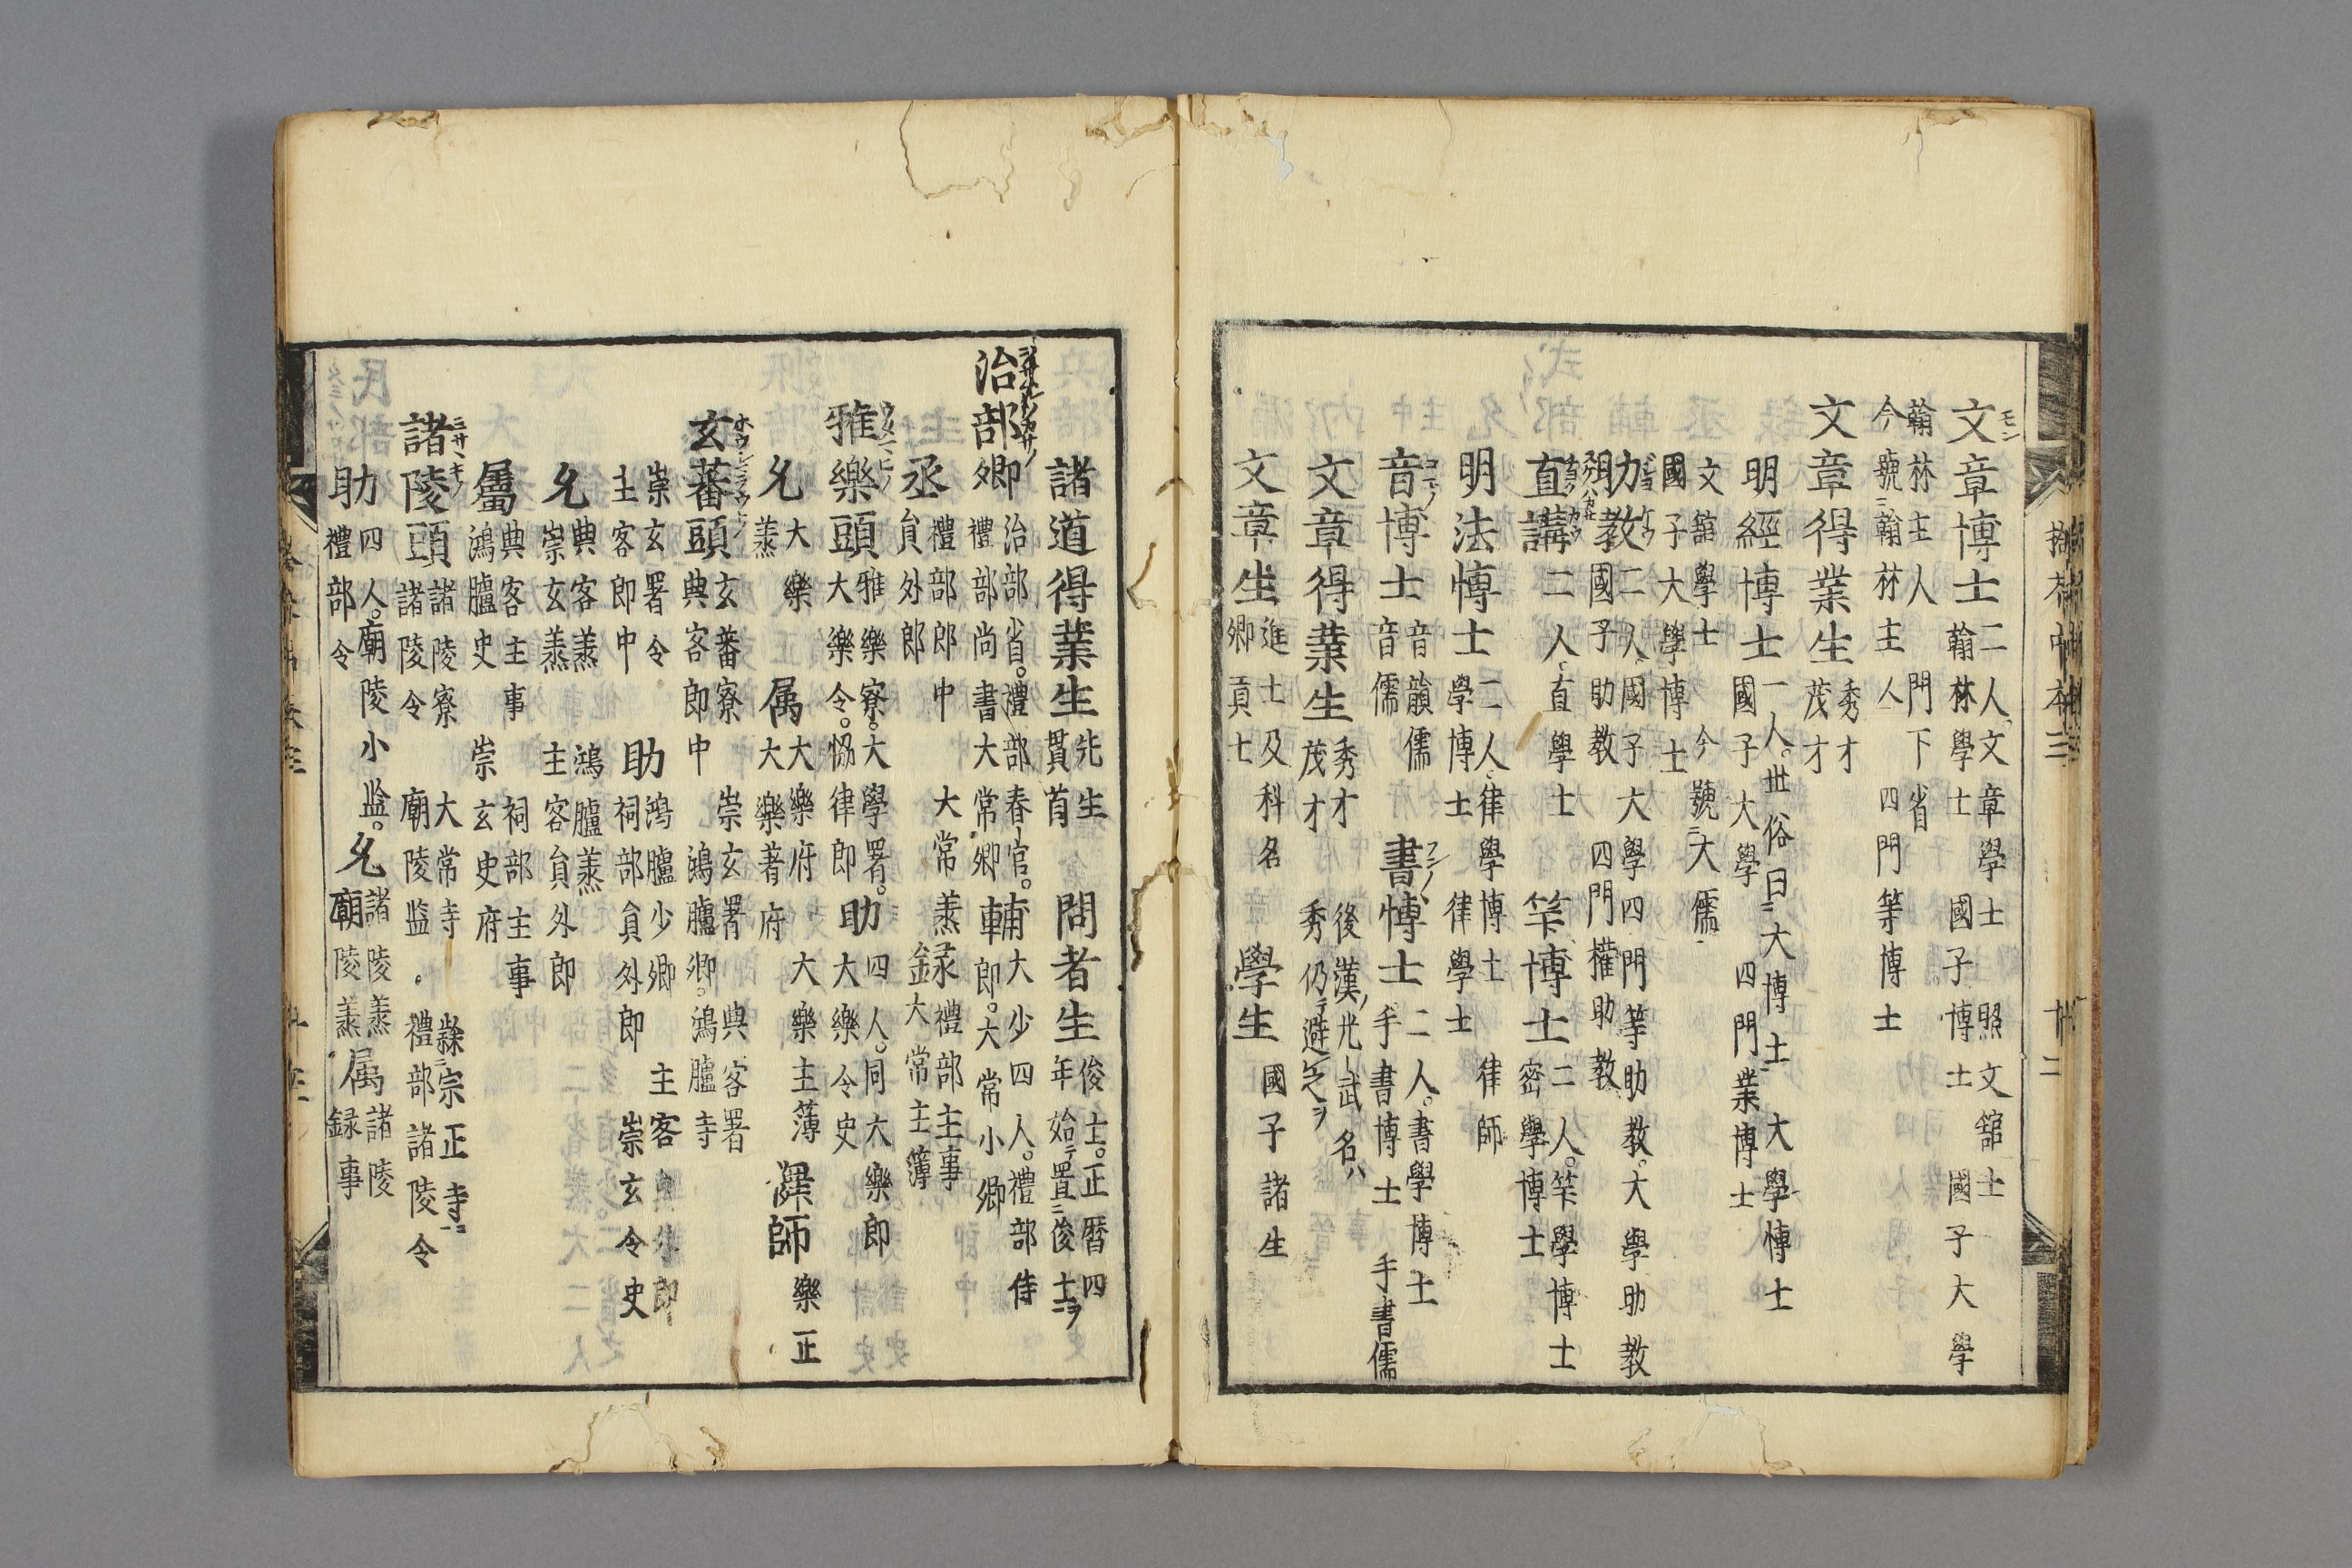 文章博士二人。文章學士　照文舘士
翰林學士　國子博士　國子大學
翰林主人　門下省
今號翰林主人　四門等博士
文章得業生　秀才
茂才
明經博士一人。世俗曰大博士　大學博士
國子大學　四門業博士
文舘學士　今號大儒
國子大學博士
助教二人。國子大學四門等助教。大學助教
國子助教　四門權助教
直講二人。直學士　筭博士二人。筭學博士
密學博士
明法博士二人。律學博士　律師
學博士　律學士
音博士　音韻儒　書博士二人。書學博士
音儒　手書博士　手書儒
文章得業生　秀才　後漢光武名ハ
茂才　秀仍避之ヲ
文章生　進士及科名　學生　國子諸生
卿貢士
諸道得業生　先生　問者生　俊士。正暦四
貫首　年始置俊士ヲ
治部卿　治部省。禮部春官。輔　大少四人。禮部侍
禮部尚書大常卿　郎。大常小卿
丞　禮部郎中　大常丞　録　禮部主事
貟外郎　大常主簿
雅樂頭　雅樂寮。大學署。助　四人。同大樂郎
大樂令。恊律郎　大樂令史
允　大樂　属　大樂府　大樂主薄　濢師　樂正
丞　大樂著府
玄蕃頭　玄蕃寮　崇玄署　典客署
典客郎中　鴻臚卿。鴻臚寺
崇玄署令　助　鴻臚少卿　主客
主客郎中　祠部貟外郎　崇玄令史
允　典客丞　鴻臚丞
崇玄丞　主客貟外郎
屬　典客主事　祠部主事
鴻臚史　崇玄史府
諸陵頭　諸陵寮　大常寺　隸宗正寺
諸陵令　廟陵監　禮部諸陵令
助　四人。廟陵小監。允　諸陵丞　属　諸陵
禮部令　廟陵丞　録事